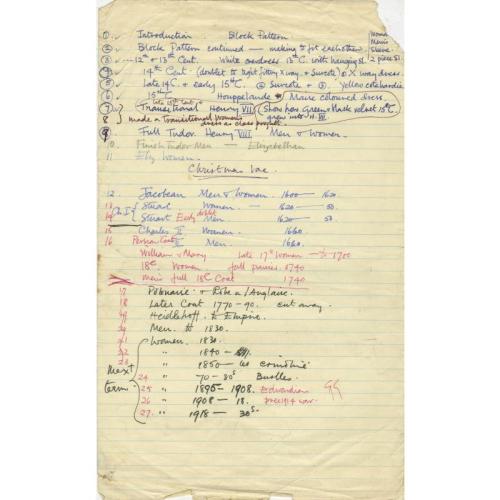 1 Introduction. Block Pattern
2 Block Pattern continued — making to fit each other.
3 12th + 13th Cent. White overdress 13th C. with hanging sl.
4 14th Cent (doublet to tight fitting X way + Surcote) X way dress
5 late 14 C. + early 15th C. Surcote + Yellow cotehardie
6 15th C Houppelande Mauve coloured dress.
7 Transitional Henry VII (Show how Green + Black velvet 15th C
8 made a Transitional Women's grew into H. VIII
dress as class project.
9 Full Tudor Henry VIII Men & Women.
10 Finish Tudor Men — Elizabethan
11 Eliz Women.
Christmas Vac.
12 Jacobean Men & Women. 1600 — 1620.
13 Ch. I Stuart Women. — 1620 — 50.
14 Stuart Early doublet Men 1620 — 50.
15 Charles II Women. 1660.
16 Persian Coat II Men. 1660.
William & Mary late 17th Women — to 1700
18th C. Women full panniers 1740
Men's full 18th C Coat 1740
17 Polonaise + Robe a l'Anglaise.
18 Later Coat 1770-90. cut away.
Heidlehoff to Empire.
Men. to 1830.
21 Women. 1830.
22 " 1840 —
23 " 1850 — 60 crinoline
Next term
24 " 70 — 80s Bustles.
25 " 1895 — 1908. Edwardian
26 " 1908 — 18. pre 1914 war.
27. " 1918 — 30s.